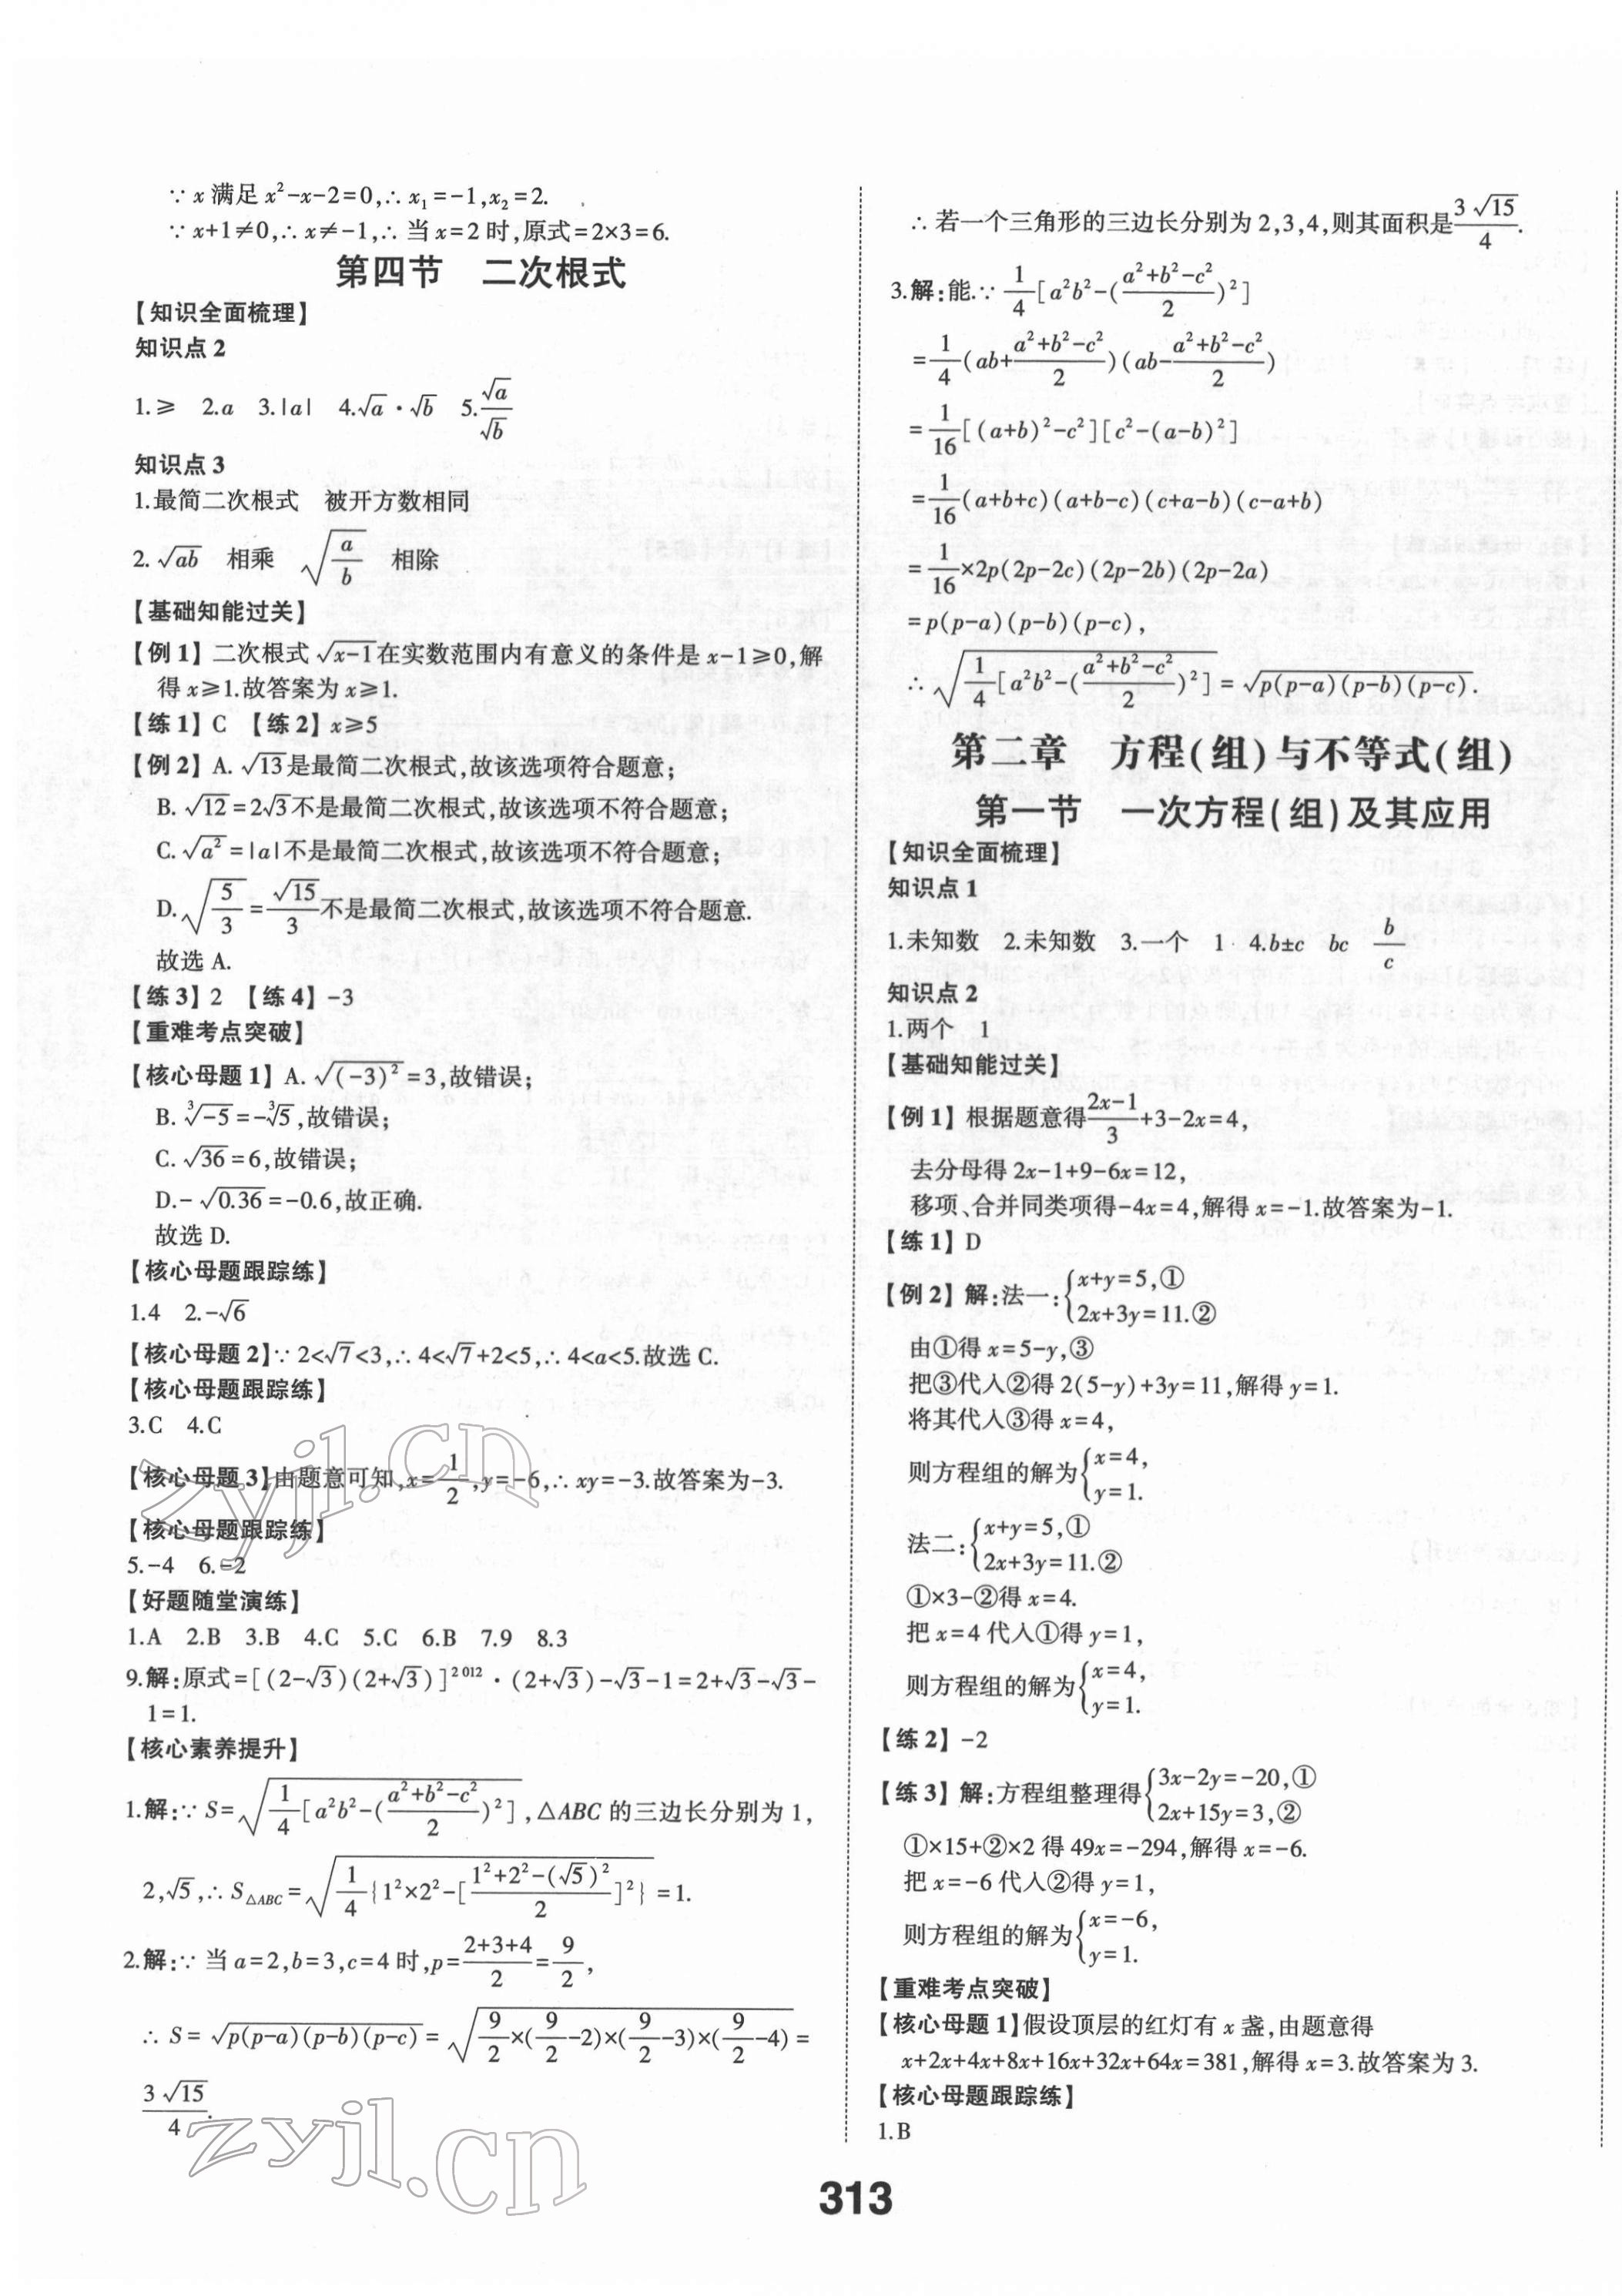 ∵ x 满足 x²-x-2=0,∴ x₁=-1,x₂=2.
∵ x+1≠0,∴ x≠-1,∴ 当 x=2 时,原式=2×3=6.
第四节 二次根式
【知识全面梳理】
知识点 2
1.≥ 2.a 3.|a| 4.√a·√b 5.√a/√b
知识点 3
1.最简二次根式 被开方数相同
2.√(ab) 相乘 √(a/b) 相除
【基础知能过关】
【例 1】二次根式√(x-1)在实数范围内有意义的条件是 x-1≥0,解
得 x≥1.故答案为 x≥1.
【练 1】C 【练 2】x≥5
【例 2】A.√13是最简二次根式,故该选项符合题意;
B.√12=2√3不是最简二次根式,故该选项不符合题意;
C.√(a²)=|a|不是最简二次根式,故该选项不符合题意;
D.√(5/3)=√15/3不是最简二次根式,故该选项不符合题意.
故选 A.
【练 3】2 【练 4】-3
【重难考点突破】
【核心母题 1】A.√((-3)²)=3,故错误;
B.³√(-5)=-³√5,故错误;
C.√36=6,故错误;
D.-√0.36=-0.6,故正确.
故选 D.
【核心母题跟踪练】
1.4 2.-√6
【核心母题 2】∵ 2<√7<3,∴ 4<√7+2<5,∴ 4<a<5.故选 C.
【核心母题跟踪练】
3.C 4.C
【核心母题 3】由题意可知,x=1/2,y=-6,∴ xy=-3.故答案为-3.
【核心母题跟踪练】
5.-4 6.-2
【好题随堂演练】
1.A 2.B 3.B 4.C 5.C 6.B 7.9 8.3
9.解:原式=[(2-√3)(2+√3)]²⁰¹²·(2+√3)-√3-1=2+√3-√3-
1=1.
【核心素养提升】
1.解:∵ S=√(1/4[a²b²-((a²+b²-c²)/2)²]),△ABC 的三边长分别为 1,
2,√5,∴ S△ABC=√(1/4{1²×2²-[(1²+2²-(√5)²)/2]²})=1.
2.解:∵ 当 a=2,b=3,c=4 时,p=(2+3+4)/2=9/2,
∴ S=√(p(p-a)(p-b)(p-c))=√(9/2×(9/2-2)×(9/2-3)×(9/2-4))=
3√15/4.
∴ 若一个三角形的三边长分别为 2,3,4,则其面积是3√15/4.
3.解:能.∵ 1/4[a²b²-((a²+b²-c²)/2)²]
=1/4(ab+(a²+b²-c²)/2)(ab-(a²+b²-c²)/2)
=1/16[(a+b)²-c²][c²-(a-b)²]
=1/16(a+b+c)(a+b-c)(c+a-b)(c-a+b)
=1/16×2p(2p-2c)(2p-2b)(2p-2a)
=p(p-a)(p-b)(p-c),
∴ √(1/4[a²b²-((a²+b²-c²)/2)²])=√(p(p-a)(p-b)(p-c)).
第二章 方程(组)与不等式(组)
第一节 一次方程(组)及其应用
【知识全面梳理】
知识点 1
1.未知数 2.未知数 3.一个 1 4.b±c bc b/c
知识点 2
1.两个 1
【基础知能过关】
【例 1】根据题意得(2x-1)/3+3-2x=4,
去分母得 2x-1+9-6x=12,
移项、合并同类项得-4x=4,解得 x=-1.故答案为-1.
【练 1】D
【例 2】解:法一:{x+y=5,①
2x+3y=11.②
由①得 x=5-y,③
把③代入②得 2(5-y)+3y=11,解得 y=1.
将其代入③得 x=4,
则方程组的解为{x=4,
y=1.
法二:{x+y=5,①
2x+3y=11.②
①×3-②得 x=4.
把 x=4 代入①得 y=1,
则方程组的解为{x=4,
y=1.
【练 2】-2
【练 3】解:方程组整理得{3x-2y=-20,①
2x+15y=3,②
①×15+②×2 得 49x=-294,解得 x=-6.
把 x=-6 代入②得 y=1,
则方程组的解为{x=-6,
y=1.
【重难考点突破】
【核心母题 1】假设顶层的红灯有 x 盏,由题意得
x+2x+4x+8x+16x+32x+64x=381,解得 x=3.故答案为 3.
【核心母题跟踪练】
1.B
313
zyjl.cn
zyjl.cn